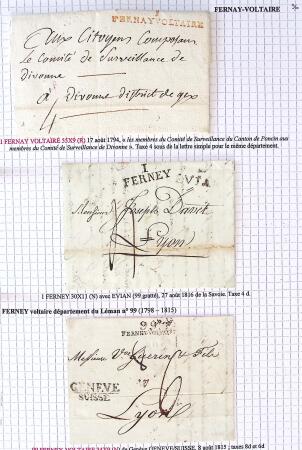 FERNAY-VOLTAIRE
1
FERNAY VOLTAIRE
Aux Citoyens Composant
le Comité de Surveillance de
divonne
à Divonne district de gex
4
1 FERNAY VOLTAIRE 55X9 (R) 17 août 1794, « les membres du Comité de Surveillance du Canton de Poncin aux
membres du Comité de Surveillance de Divonne ». Taxé 4 sous de la lettre simple pour le même département.
1
FERNEY
Monsieur Joseph
Lyon
1 FERNEY 30X11 (N) avec EVIAN (99 gratté), 27 août 1816 de la Savoie. Taxe 4 d.
FERNEY voltaire département du Léman n° 99 (1798 – 1815)
99
FERNEY
Messieurs
GENEVE
SUISSE
6
Lyon
GENEVE/SUISSE, 8 août 1815 ; taxes 8d et 6d